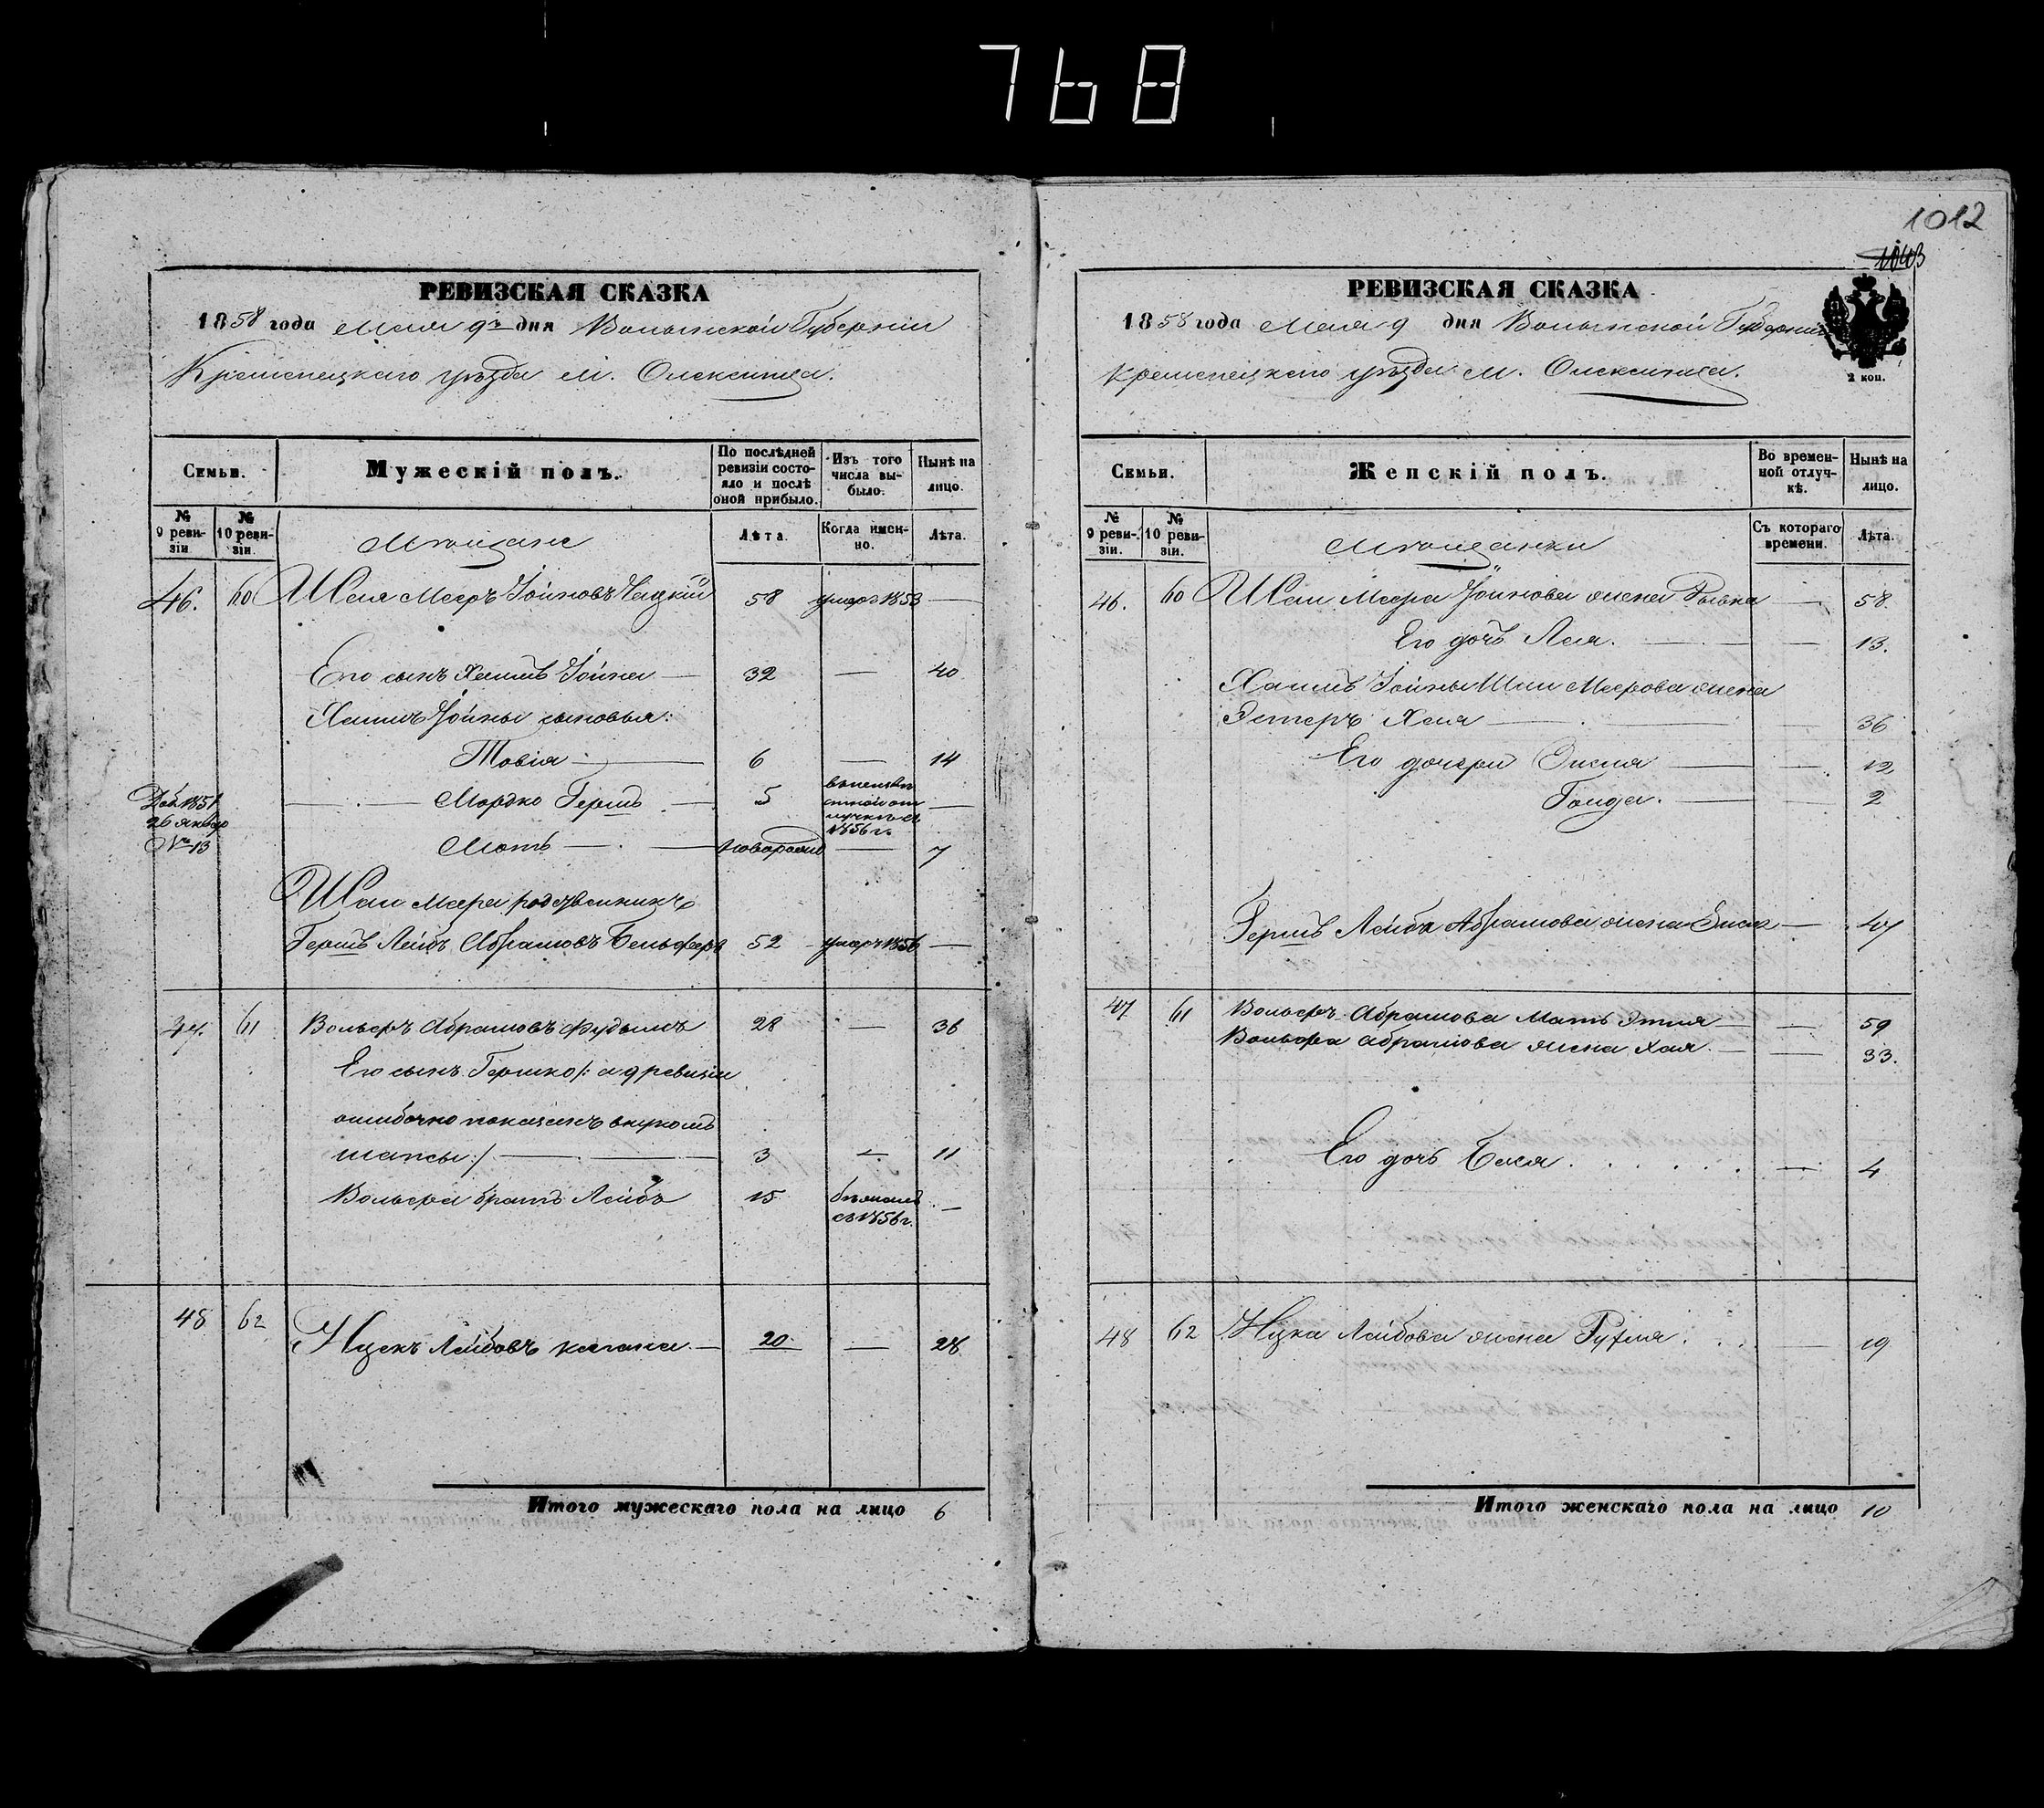 768
1012
1043
РЕВИЗСКАЯ СКАЗКА
1858 года Мая 9го дня Волынской Губерніи
Кременецкаго уѣзда м. Олексинца.
Семьи.
Мужескій полъ.
По послѣдней ревизіи состояло и послѣ оной прибыло.
Изъ того числа выбыло.
Нынѣ на лицо.
№ 9 ревизіи.
№ 10 ревизіи.
Мѣщане
Лѣта.
Когда именно.
Лѣта.
46. 60 Шая Мееръ Іойновъ 58 умеръ 1853 —
Его сынъ Хаимъ Іойна — 32 — 40
Хаимъ Іойны сыновья:
Товія — 6 — 14
Мордко Гершъ 5 —
1856 г.
Доб. 1851
26 январ
№ 13
Мотъ — — 7
Шаи Меера родственникъ
Гершъ Лейбъ Абрамовъ 52 умеръ 1856 —
47. 61 Вольфъ Абрамовъ Фудымъ 28 — 36
Его сынъ Гершко /: а 9 ревизіи
ошибочно показанъ внукомъ
:/ — 3 — 11
Вольфа братъ Лейбъ 15 бѣжалъ —
съ 1856 г.
48 62 Ицекъ Лейбовъ — 20 — 28
Итого мужескаго пола на лицо 6
РЕВИЗСКАЯ СКАЗКА
1858 года Мая 9 дня Волынской Губерніи
Кременецкаго уѣзда м. Олексинца.
2 коп.
Семьи.
Женскій полъ.
Во временной отлучкѣ.
Нынѣ на лицо.
№ 9 ревизіи.
№ 10 ревизіи.
Мѣщанки
Съ котораго времени.
Лѣта.
46. 60 Шаи Меера Іойнова жена Рывка — 58.
Его дочь Лея. — 13.
Хаимъ Іойны Шаи Меерова жена
Эстеръ Хая — 36
Его дочери — 12
Голда. — 2
Гершъ Лейба Абрамова жена — 47
47 61 Вольфъ Абрамова Мать Этля — 59
Вольфа Абрамова жена Хая. — 33.
Его дочь Бася. — 4
48 62 Ицка Лейбова жена Рухля. — 19
Итого женскаго пола на лицо 10